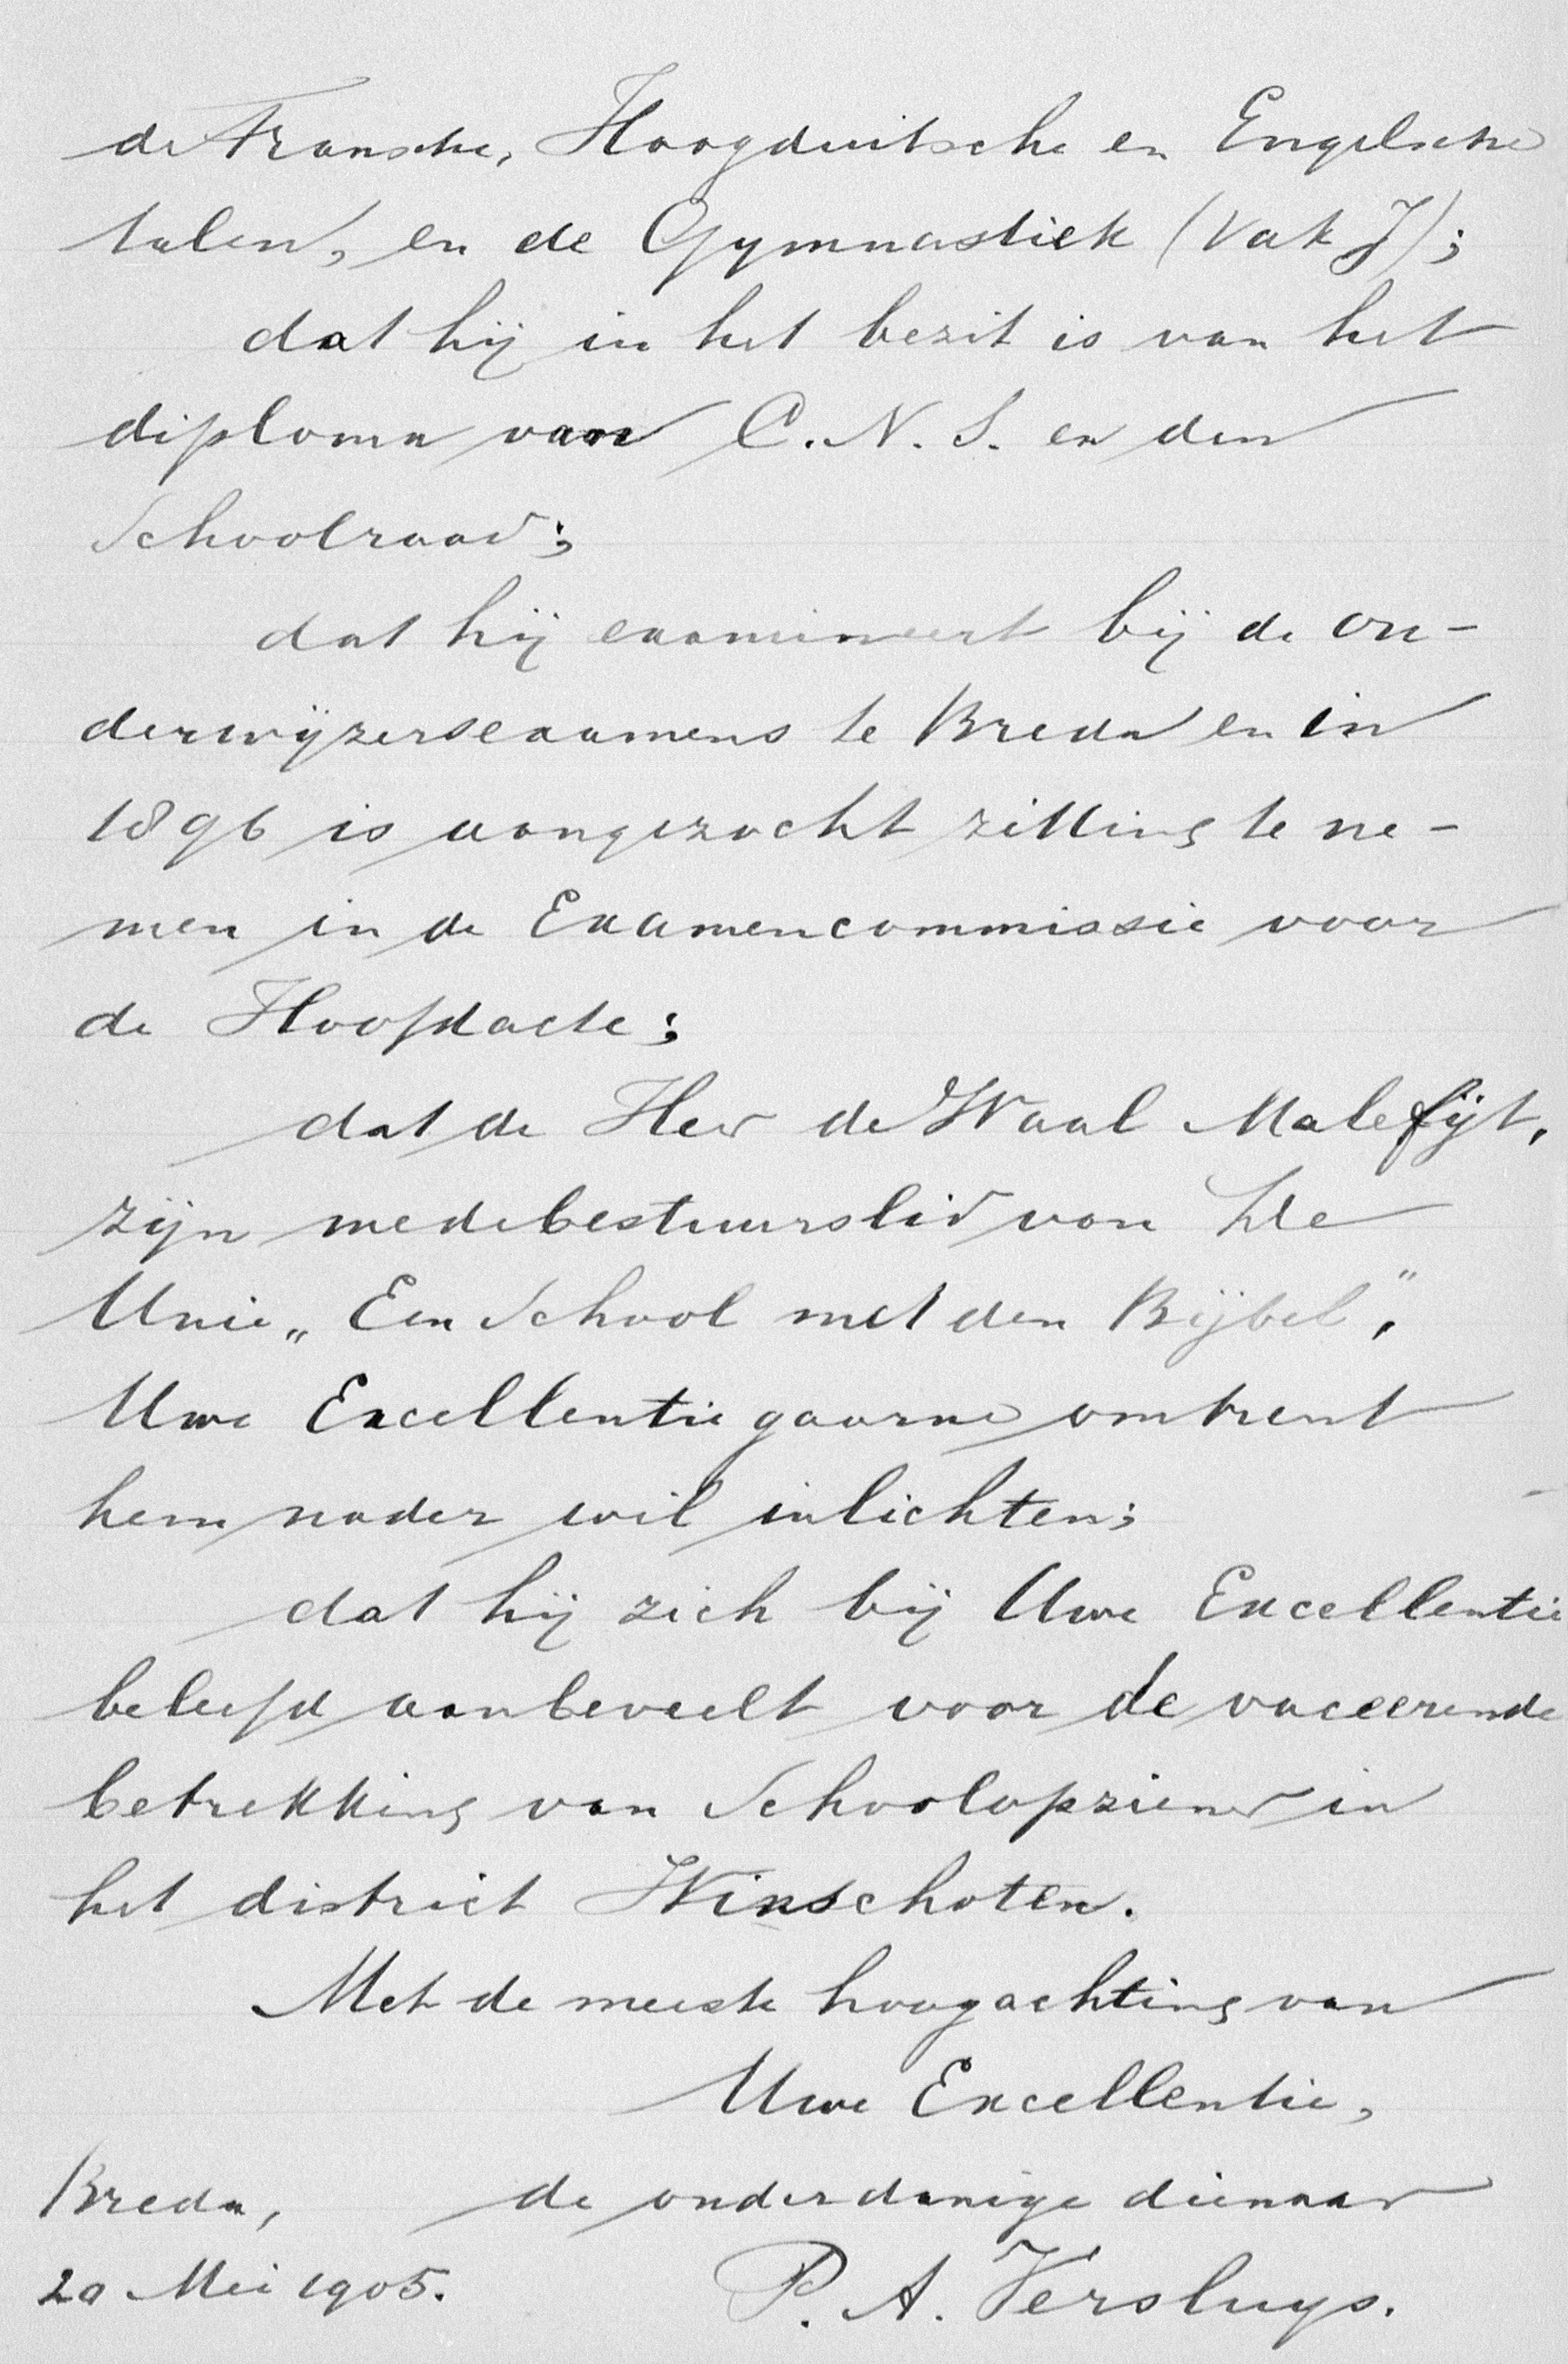 de Fransche, Hoogduitsche en Engelsche
talen, en de Gymnastiek (Vak J);
dat hij in het bezit is van het
diploma van C.N.S. en den
Schoolraad;
dat hij examineert bij de on-
derwijzersexamens te Breda en in
1896 is aangezocht zitting te ne-
men in de Examencommissie voor
de Hoofdacte;
dat de Heer de Waal Malefijt,
zijn medebestuurslid van De
Unie „Een School met den Bijbel”,
Uwe Excellentie gaarne omtrent
hem nader wil inlichten;
dat hij zich bij Uwe Excellentie
beleefd aanbeveelt voor de vaceerende
betrekking van Schoolopziener in
het district Winschoten.
Met de meeste hoogachting van
Uwe Excellentie,
Breda, de onderdanige dienaar
20 Mei 1905. P. A. Versluys.